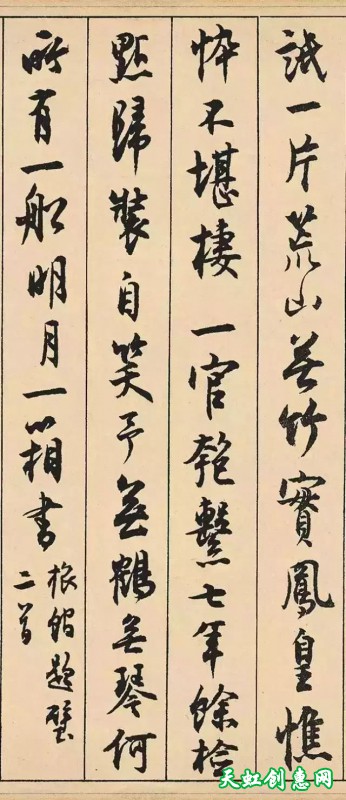 詆一片荒山無竹實鳳皇憔
悴不堪棲 一官匏繫七年餘檢
點歸裝自笑予無鶴無琴何
所有一船明月一箱書
旅館題壁
二首
天虹创惠网